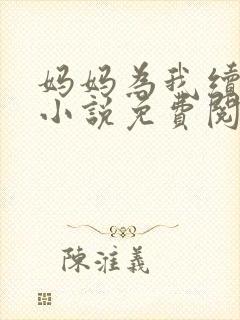 妈妈為我續
小說免費閱
陳漼義